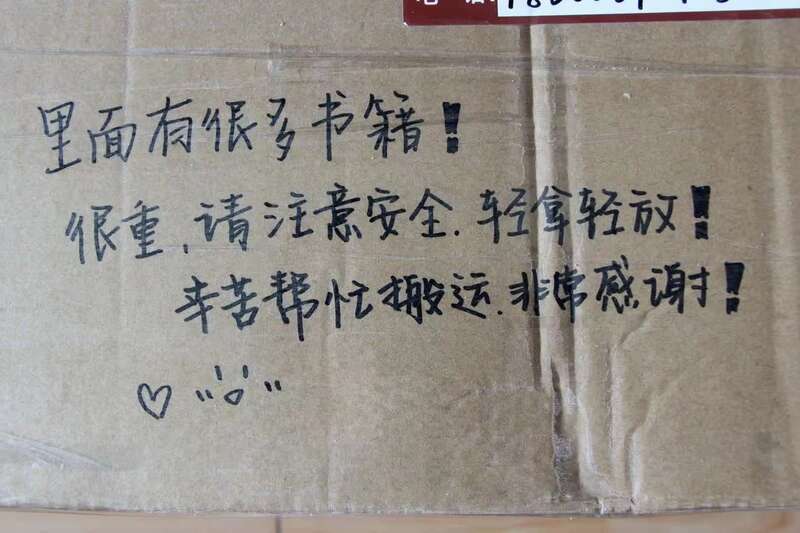 里面有很多书籍!
很重,请注意安全.轻拿轻放!
辛苦帮忙搬运.非常感谢!